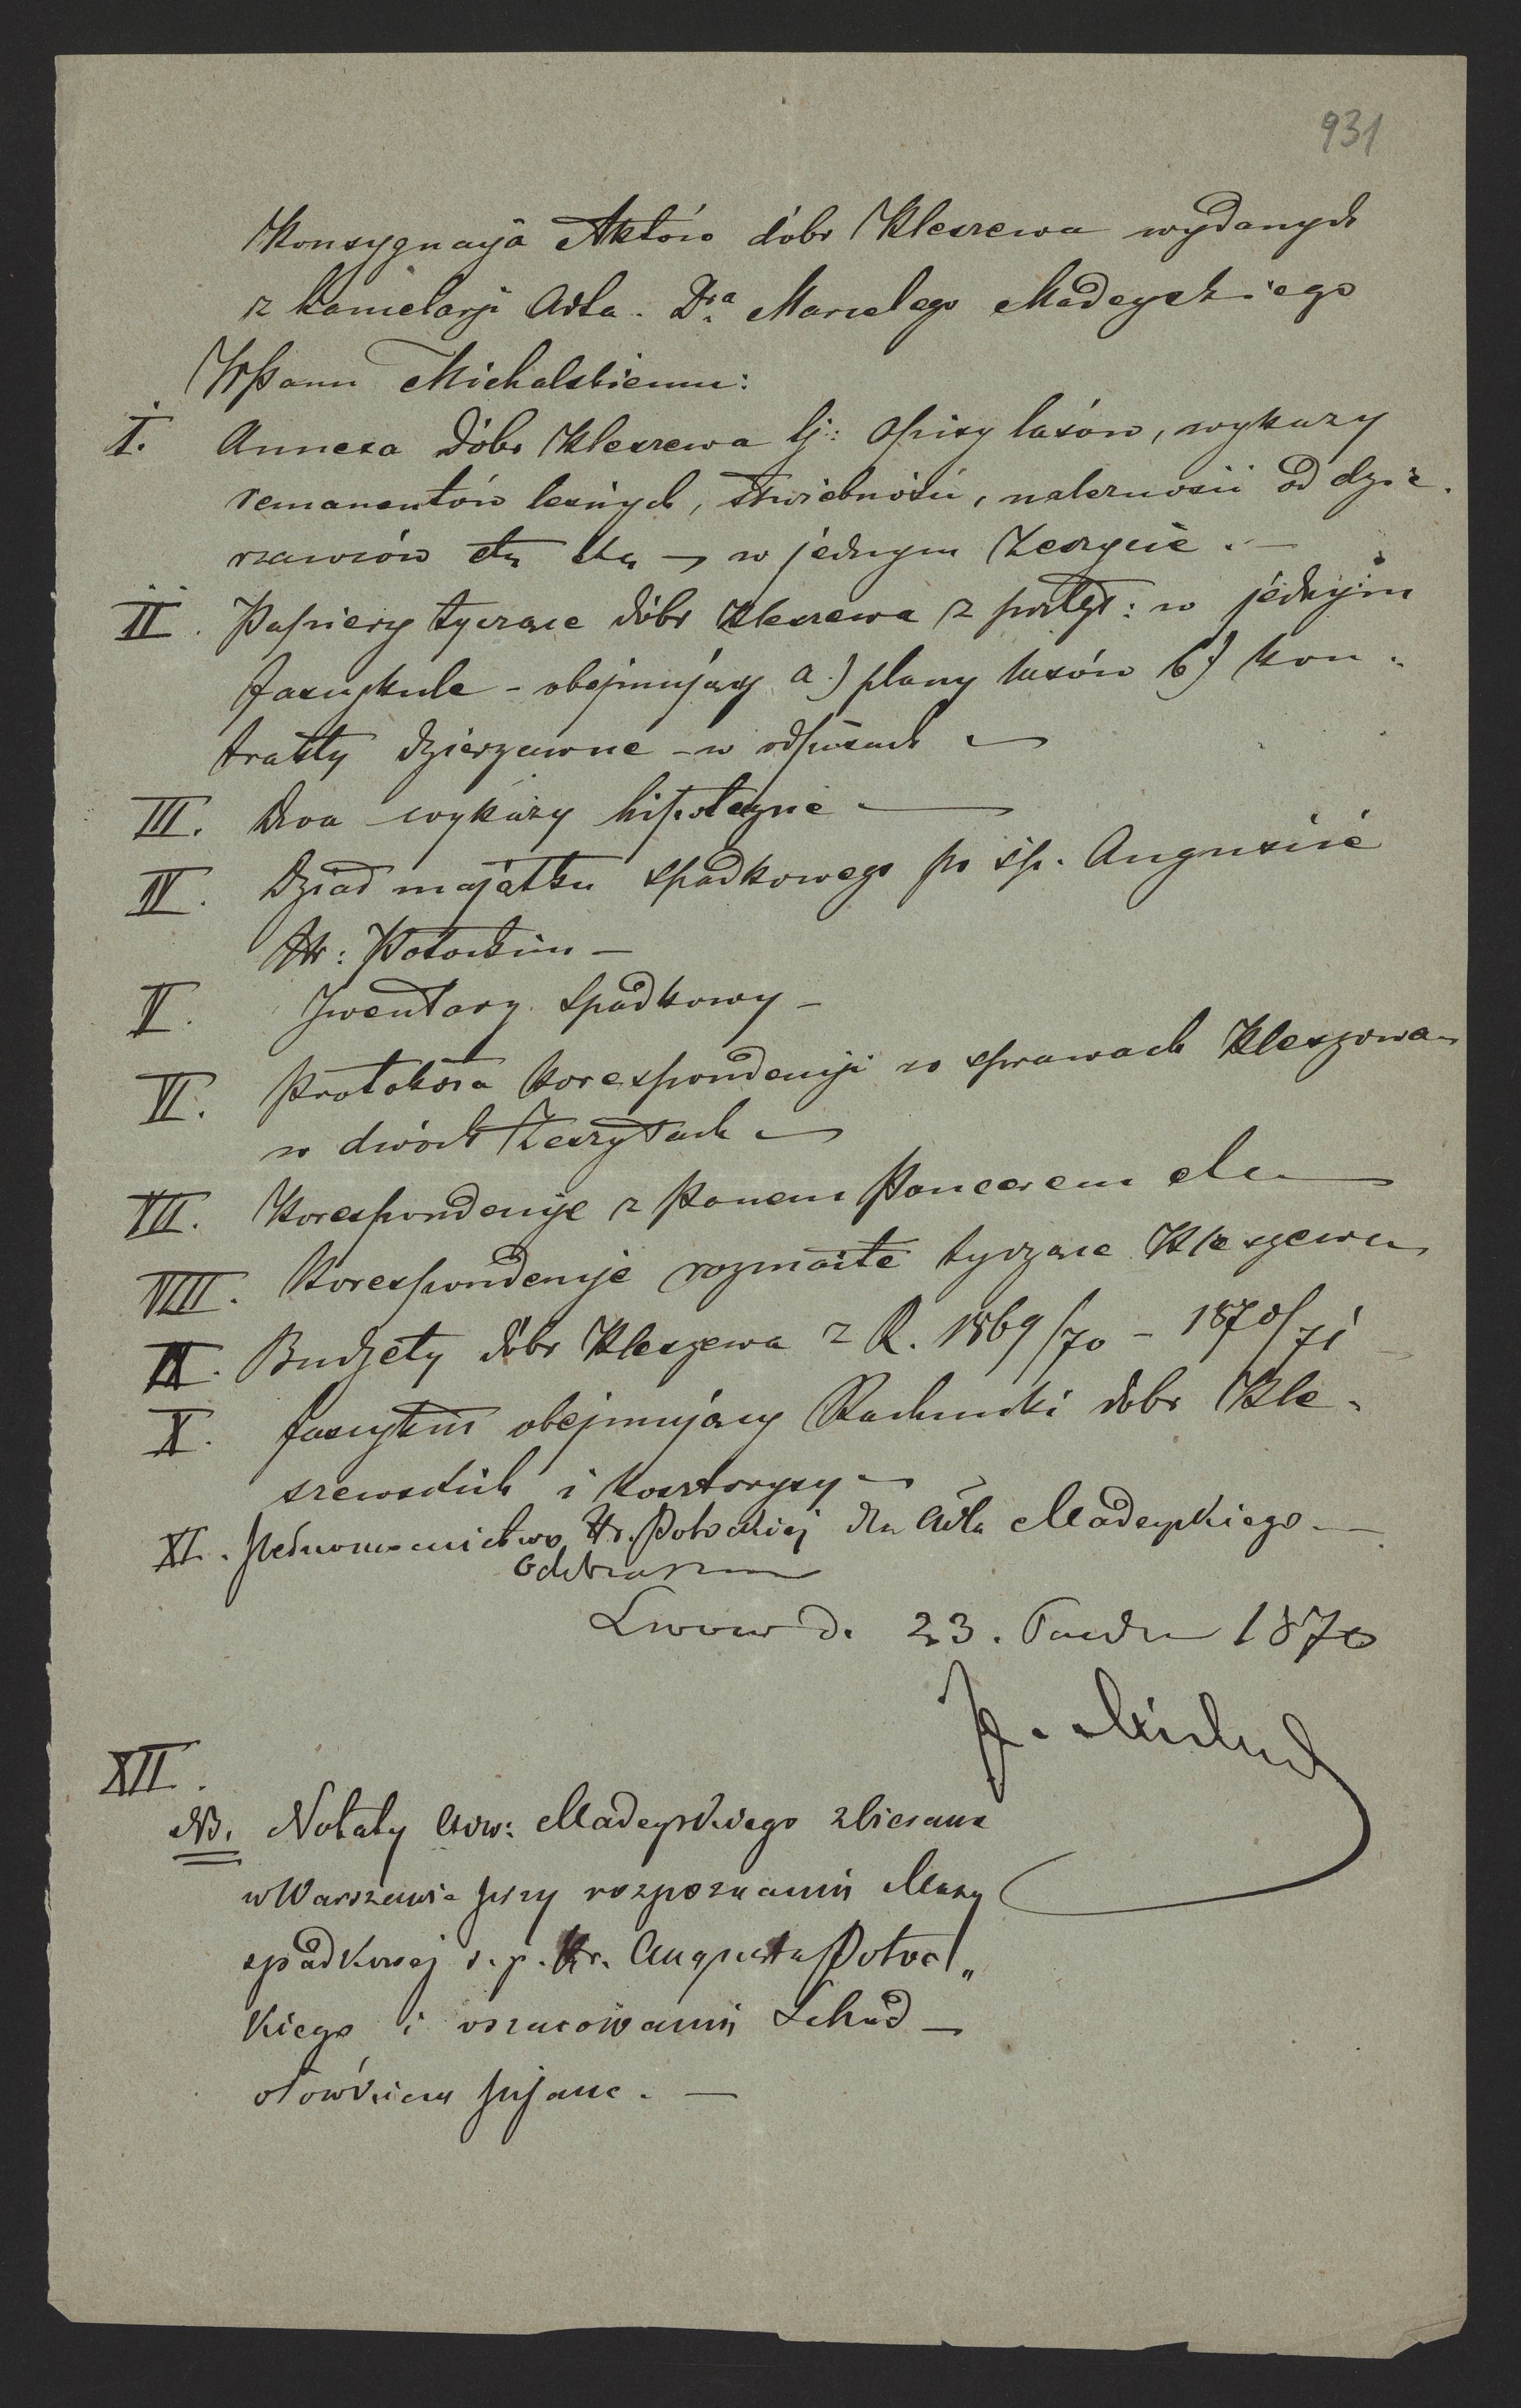 931
Konsygnacyja Aktów dóbr Kleszewa wydanych
z kancelarji Adta. Dra Marcelego Madeyskiego
WPanu Michalskiemu:
I. Annexa dóbr Kleszewa tj: opisy lasów, wykazy
remanentów leśnych, służebności, należności od dzie-
rzawców etc etc – w jednym zeszycie. –
II. Papiery tyczące dóbr Kleszewa z przyl: w jednym
fascykule – obejmujący a.) plany lasów b) kon-
trakty dzierzawne – w odpisach –
III. Dwa wykazy hipoteczne –
IV. Dział majątku spadkowego po śp. Auguście
Hr: Potockim –
V. Inwentarz spadkowy –
VI. Protokoła korespondencyi w sprawach Kleszewa
w dwóch zeszytach –
VII. Korespondencyje z Panem Pancerem etc
VIII. Korespondencyje rozmaite tyczące Kleszewa
IX. Budżety dóbr Kleszewa z R. 1869/70 – 1870/71
X. fascykuł obejmujący Rachunki dóbr Kle-
szewskich i kosztorysy –
XI. Pełnomocnictwo Hr. Potockiej dla Adta Madeyskiego. –
Odebrałem
Lwow d. 23. 1870
J. Michal
XII.
NB. Notaty Adw: Madeyskiego zbierane
w Warszawie przy rozpoznaniu Masy
spadkowej s. p. Hr. Augusta Potoc„
kiego i oszacowaniu Schad –
ołówkiem pisane. –